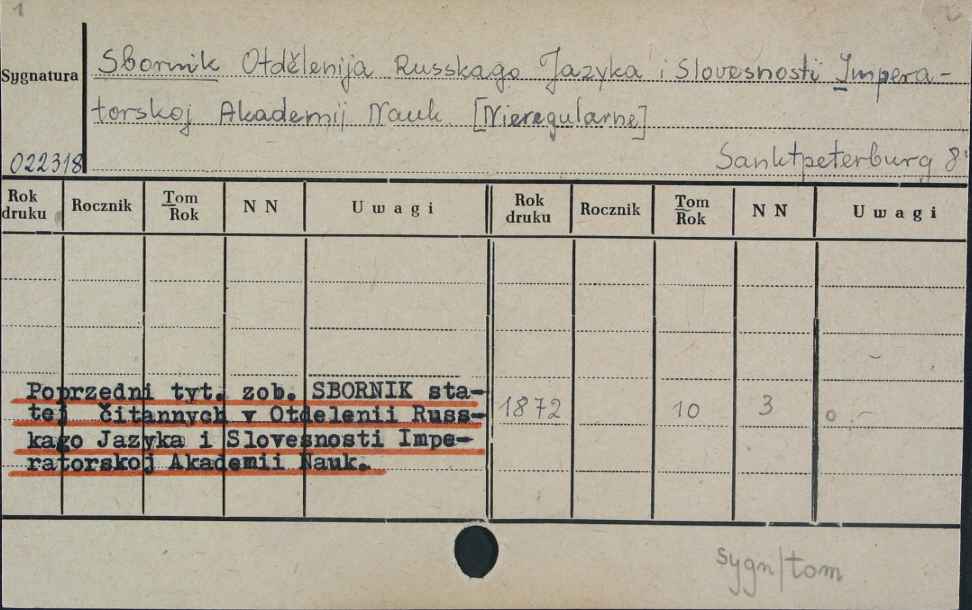 1
Sygnatura
Sbornik Otdělenija Russkago Jazyka i Slovesnosti Impera-
torskoj Akademij Nauk [Nieregularne]
022318
Sanktpeterburg 8°
Rok druku Rocznik Tom Rok N N Uwagi Rok druku Rocznik Tom Rok N N Uwagi
Poprzedni tyt. zob. SBORNIK sta-
tej čitannych v Otdelenii Russ-
kago Jazyka i Slovesnosti Impe-
ratorskoj Akademii Nauk.
1872 10 3
sygn/tom